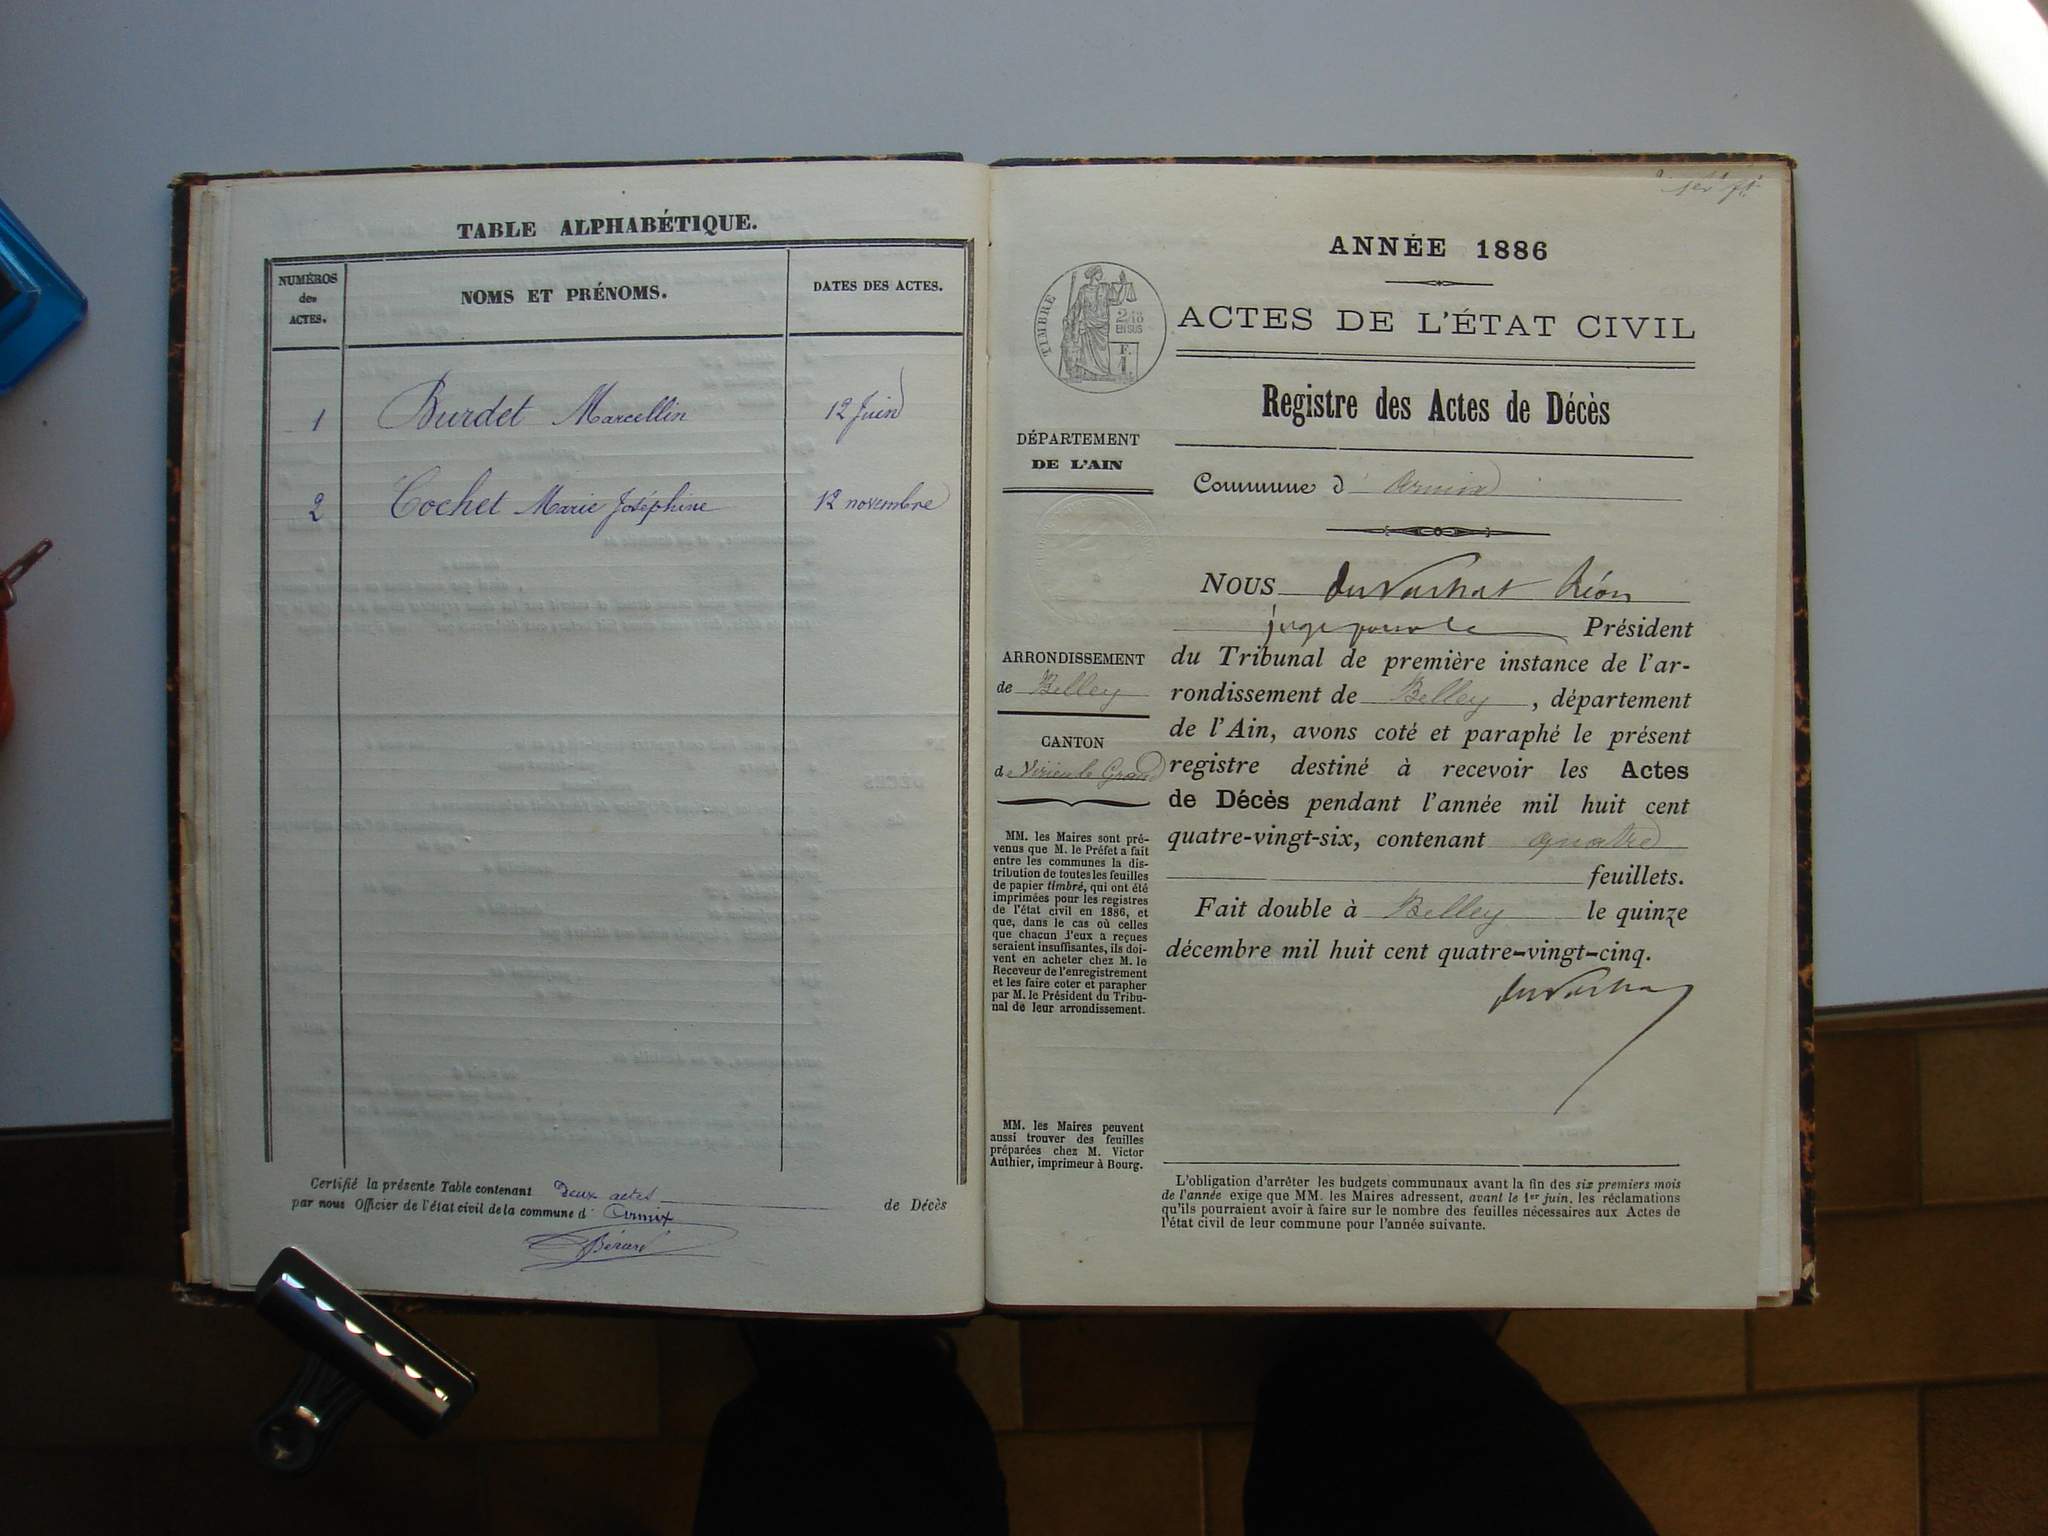 TABLE ALPHABÉTIQUE.
NUMÉROS
des
ACTES.
NOMS ET PRÉNOMS.
DATES DES ACTES.
1 Burdet Marcellin 12 Juin
2 Cochet Marie Joséphine 12 novembre
Certifié la présente Table contenant Deux actes de Décès
par nous Officier de l'état civil de la commune d' Armix
Bérard
ANNÉE 1886
ACTES DE L'ÉTAT CIVIL
TIMBRE
2/10
EN SUS
F.
1
Registre des Actes de Décès
DÉPARTEMENT
DE L'AIN
Commune d' Armix
ARRONDISSEMENT
de Belley
CANTON
de Virieu le Grand
MM. les Maires sont pré-
venus que M. le Préfet a fait
entre les communes la dis-
tribution de toutes les feuilles
de papier timbré, qui ont été
imprimées pour les registres
de l'état civil en 1886, et
que, dans le cas où celles
que chacun d'eux a reçues
seraient insuffisantes, ils doi-
vent en acheter chez M. le
Receveur de l'enregistrement
et les faire coter et parapher
par M. le Président du Tribu-
nal de leur arrondissement.
MM. les Maires peuvent
aussi trouver des feuilles
préparées chez M. Victor
Authier, imprimeur à Bourg.
NOUS du Vachat Léon
juge Président
du Tribunal de première instance de l'ar-
rondissement de Belley, département
de l'Ain, avons coté et paraphé le présent
registre destiné à recevoir les Actes
de Décès pendant l'année mil huit cent
quatre-vingt-six, contenant quatre
feuillets.
Fait double à Belley le quinze
décembre mil huit cent quatre-vingt-cinq.
du Vachat
L'obligation d'arrêter les budgets communaux avant la fin des six premiers mois
de l'année exige que MM. les Maires adressent, avant le 1er juin, les réclamations
qu'ils pourraient avoir à faire sur le nombre des feuilles nécessaires aux Actes de
l'état civil de leur commune pour l'année suivante.